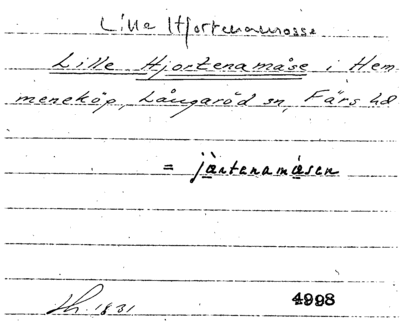 Lilla Hjortenamosse
Lille Hjortenamåse i Hem
meneköp, Långaröd sn, Färs hd
= jàrtenamåsen
1831 4998